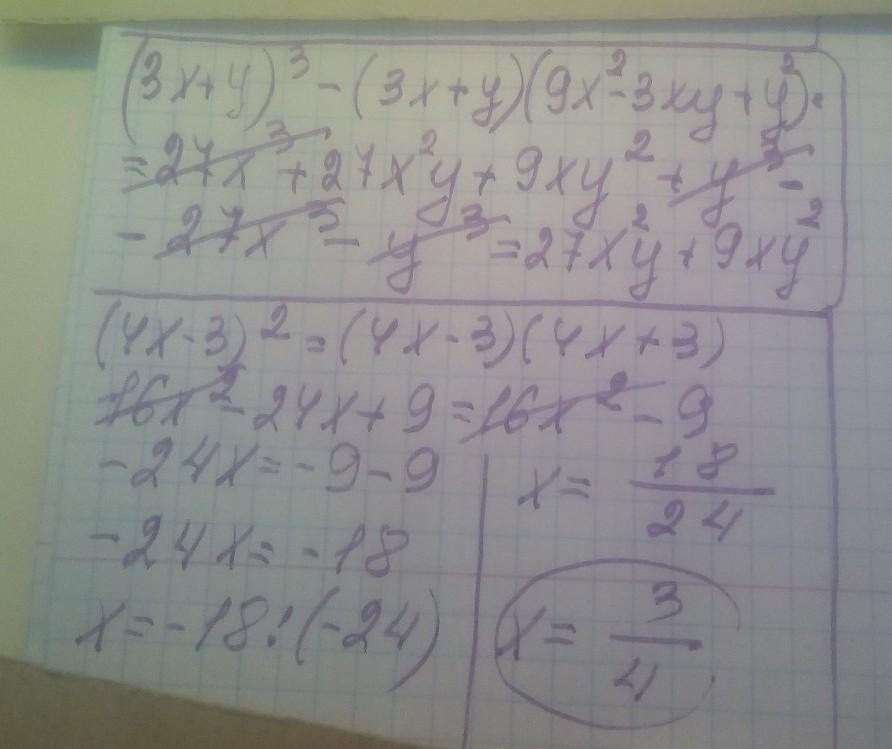 (3x+y)³-(3x+y)(9x²-3xy+y²)=
=27x³+27x²y+9xy²+y³-
-27x³-y³=27x²y+9xy²
(4x-3)²=(4x-3)(4x+3)
16x²-24x+9=16x²-9
-24x=-9-9
-24x=-18
x=-18:(-24)
x=18/24
x=3/4